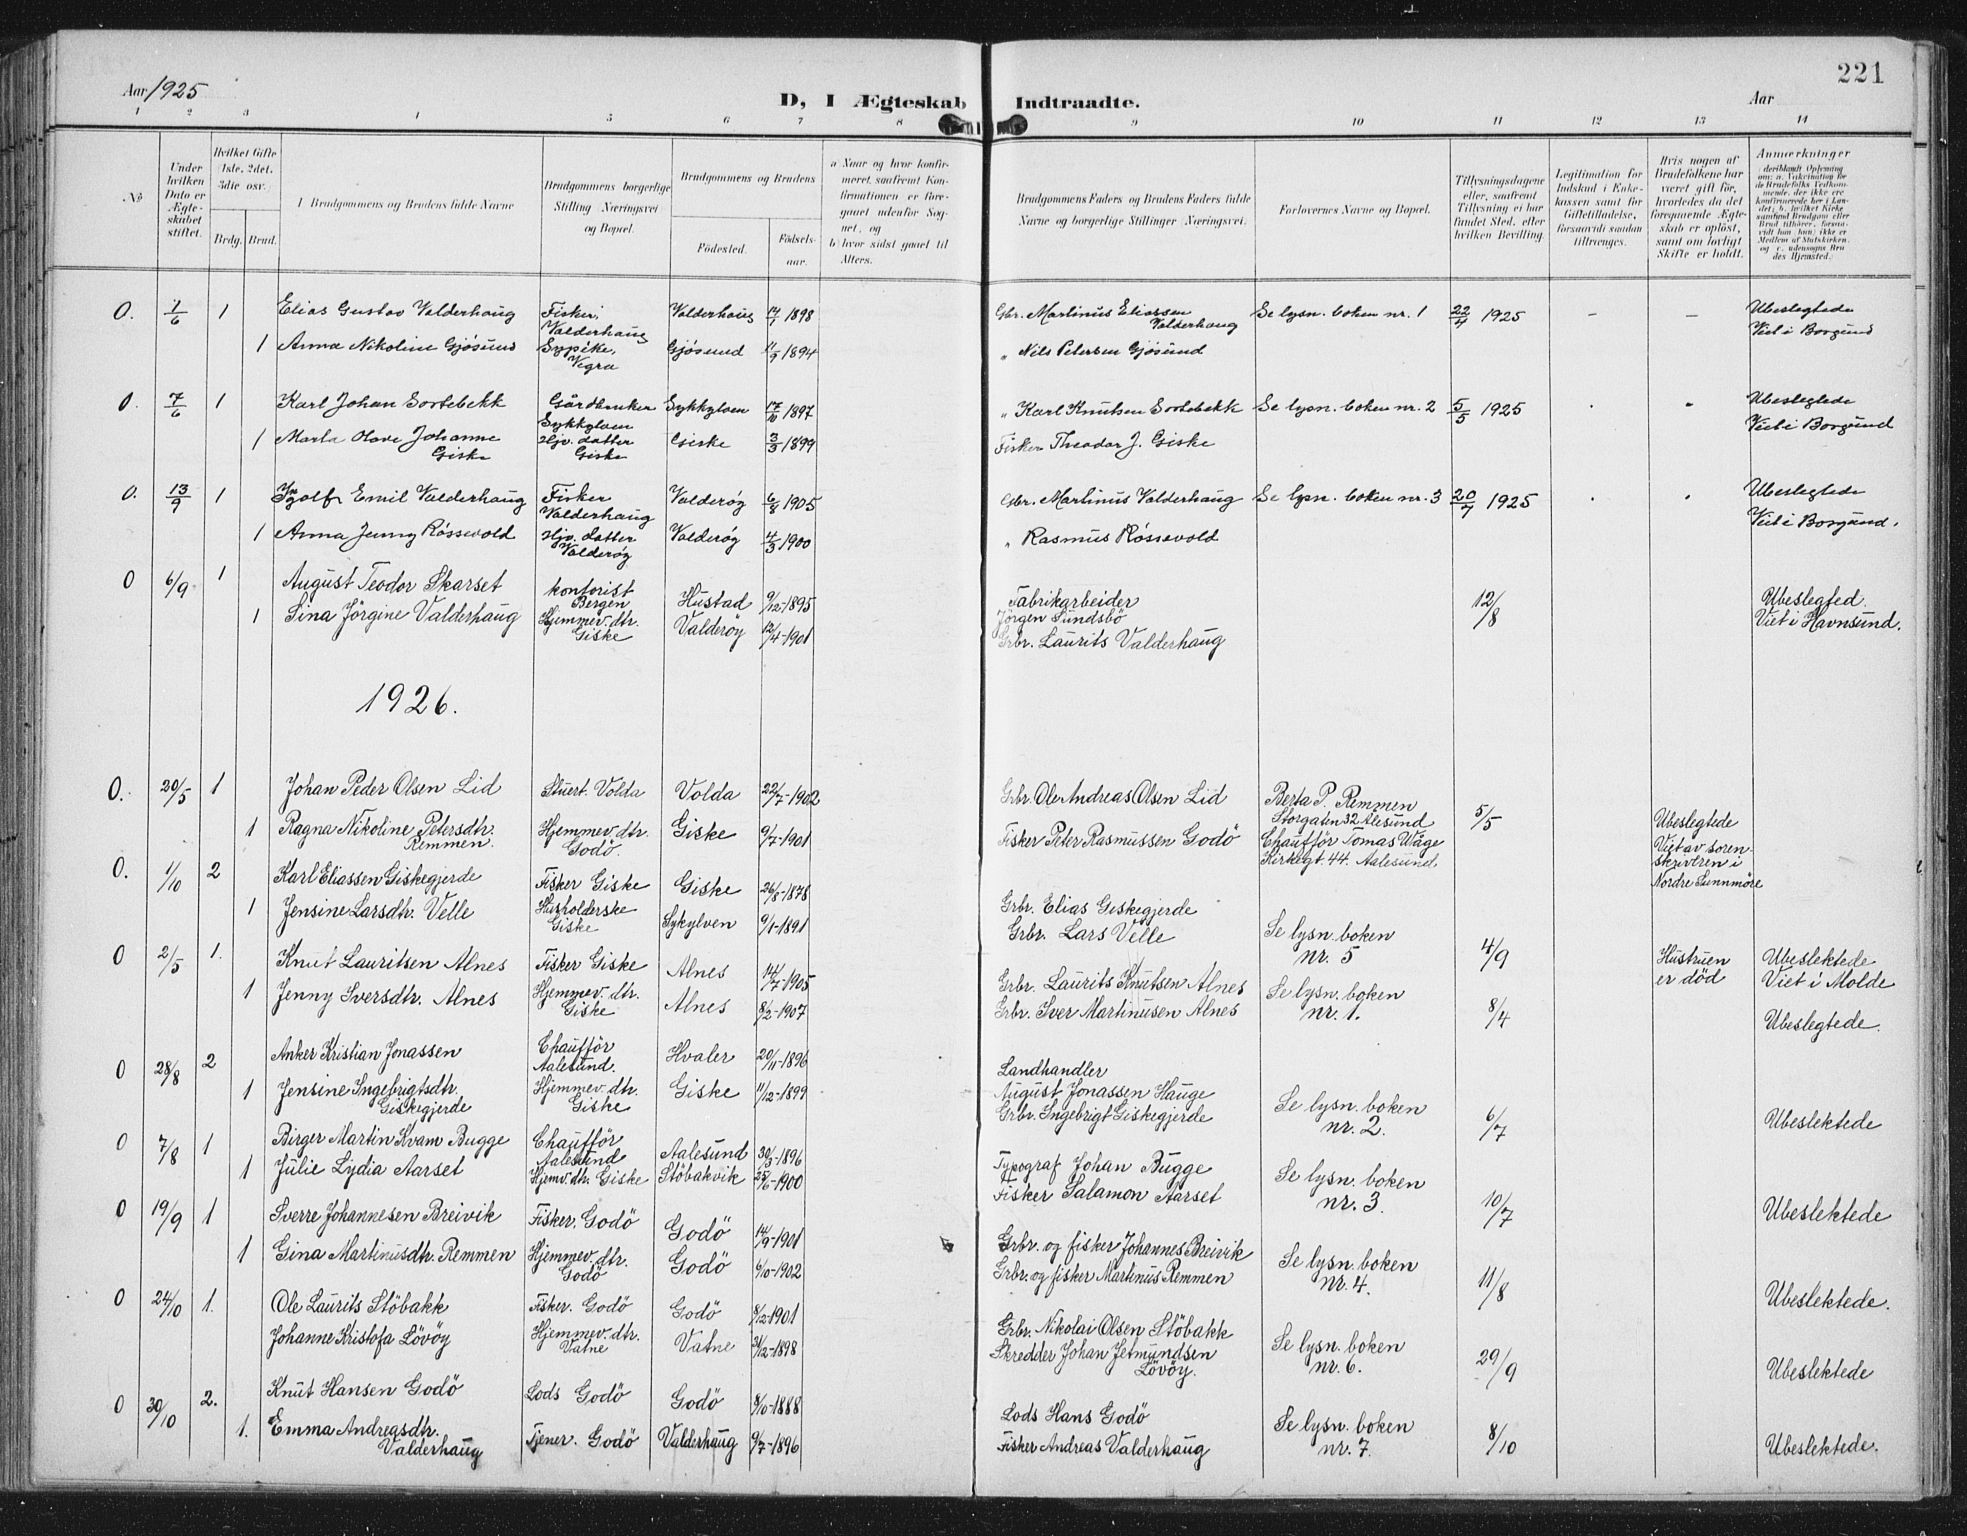 Aar 1925
D, I Ægteskab Indtraadte.
Aar
221
1 2 3 4 5 6 7 8 9 10 11 12 13 14
No
Under hvilken Dato er Ægteskabet stiftet.
Hvilket Gifte 1ste, 2det, 3die osv.
Brdg. Brud.
Brudgommens og Brudens fulde Navne
Brudgommens borgerlige Stilling Næringsvei og Bopæl.
Brudgommens og Brudens
Födested.
Födselsaar.
a Naar og hvor konfirmeret, saafremt Konfirmationen er foregaaet udenfor Sognet, og
b) hvor sidst gaaet til Alters.
Brudgommens Faders og Brudens Faders fulde Navne og borgerlige Stillinger Næringsvei.
Forlovernes Navne og Bopæl.
Tillysningsdagene eller, saafremt Tillysning ei har fundet Sted, efter hvilken Bevilling.
Legitimation for Indskud i Enkekassen samt for Giftetilladelse, forsaavidt saadan tiltrænges.
Hvis nogen af Brudefolkene har været gift för, hvorledes da det foregaaende Ægteskab er oplöst, samt om lovligt Skifte er holdt.
Anmærkninger
0. 1/6 1 Elias Gustav Valderhaug Fisker, Valderhaug Valderhaug 1898 Gbr. Martinus Eliassen Valderhaug Se lysn. boken nr. 1 22/4 1925 - - Ubeslegtede Viet i Borgund
1 Anna Nikoline Gjøsund Sypike, Vigra Gjøsund 11/9 1894 " Nils Petersen Gjøsund
0. 7/6 1 Karl Johan Sortebekk Gårdbruker Sykkylven Sykkylven 17/10 1897 " Karl Knutsen Sortebekk Se lysn. boken nr. 2 5/5 1925 Ubeslegtede Viet i Borgund
1 Marta Olave Johanne Giske Hjv. datter Giske Giske 3/3 1899 Fisker Theodor J. Giske
0. 13/9 1 Ingolf Emil Valderhaug Fisker Valderhaug Valderøy 6/8 1905 Gbr. Martinus Valderhaug Se lysn. boken nr. 3 20/7 1925 Ubeslegtede Viet i Borgund.
1 Anna Jenny Røssevold Hjv. datter Valderøy Valderøy 4/3 1900 " Rasmus Røssevold
0 6/9 1 August Teodor Skarset kontorist Bergen Hustad 9/12-1895 Fabrikarbeider Jörgen Sundsbö 12/8 Ubeslegted. Viet i Havnsund.
1 Sina Jörgine Valderhaug Hjemmev. dtr. Giske Valderöy 12/4-1901 Grbr. Laurits Valderhaug
1926.
0. 20/5 1 Johan Peder Olsen Lid Stuert. Volda Volda 22/7-1902 Grbr. Ole Andreas Olsen Lid Berta P. Remmen Storgaten 32 Alesund 5/5 Ubeslegtede
1 Ragna Nikoline Petersdtr. Remmen. Hjemmev. dtr. Godö. Giske 9/7-1901 Fisker Peter Rasmussen Godö Chaufför Tomas Wåge Kirkegt 44. Aalesund. Viet av sorenskriveren i Nordre Sunnmöre
0. 1/10 2 Karl Eliassen Giskegjerde Fisker Giske Giske 26/8-1878 Grbr. Elias Giskegjerde Se lysn. boken nr. 5 4/9 Hustruen er död Ubeslektede Viet i Molde
1 Jensine Larsdtr. Velle Husholderske Giske Sykylven 9/1-1891 Grbr. Lars Velle
0 2/5 1. Knut Lauritsen Alnes Fisker Giske Alnes 14/7-1905 Grbr. Laurits Knutsen Alnes Se lysn. boken nr. 1. 8/4 Ubeslegtede.
1 Jenny Iversdtr. Alnes Hjemmev. dtr. Giske Alnes 8/2-1907 Grbr. Iver Martinusen Alnes
0 28/8 2 Anker Kristian Jonassen Chaufför Aalesund. Hvaler 20/11-1896 Landhandler August Jonassen Hauge Se lysn. boken nr. 2. 6/7 Ubeslektede
1 Jensine Ingebrigtsdtr. Giskegjerde Hjemmev. dtr. Giske Giske 11/12-1899 Grbr. Ingebrigt Giskegjerde
0 7/8 1 Birger Martin Kvam Bugge Chauffør Aalesund Aalesund 30/3-1896 Typograf Johan Bugge Se lysn. boken nr. 3. 10/7 Ubeslektede
1 Julie Lydia Aarset Hjemv. dtr. Giske Stöbakvik 25/6-1900 Fisker Salamon Aarset
0 19/9 1 Sverre Johannesen Breivik Fisker. Godö Godö 14/9-1901 Grbr. og fisker Johannes Breivik Se lysn. boken nr. 4. 11/8 Ubeslektede.
1 Gina Martinusdtr. Remmen Hjemmev. dtr. Godö Godö 6/10-1902 Grbr. og fisker Martinus Remmen
0 24/10 1. Ole Laurits Stöbakk Fisker. Godö Godö 8/2-1901 Grbr. Nikolai Olsen Stöbakk Se lysn. boken nr. 6. 29/9 Ubeslektede
Johanne Kristofa Lövöy Hjemmev. dtr. Vatne Vatne 1898 Skredder Johan Jetmundsen Lövöy.
0 30/10 2. Knut Hansen Godö Lods Godö Godö 8/10-1888 Lods Hans Godö Se lysn. boken nr. 7. 8/10 Ubeslektede.
1. Emma Andreasdtr. Valderhaug Tjener. Godö Valderhaug 9/7-1896 Fisker Andreas Valderhaug